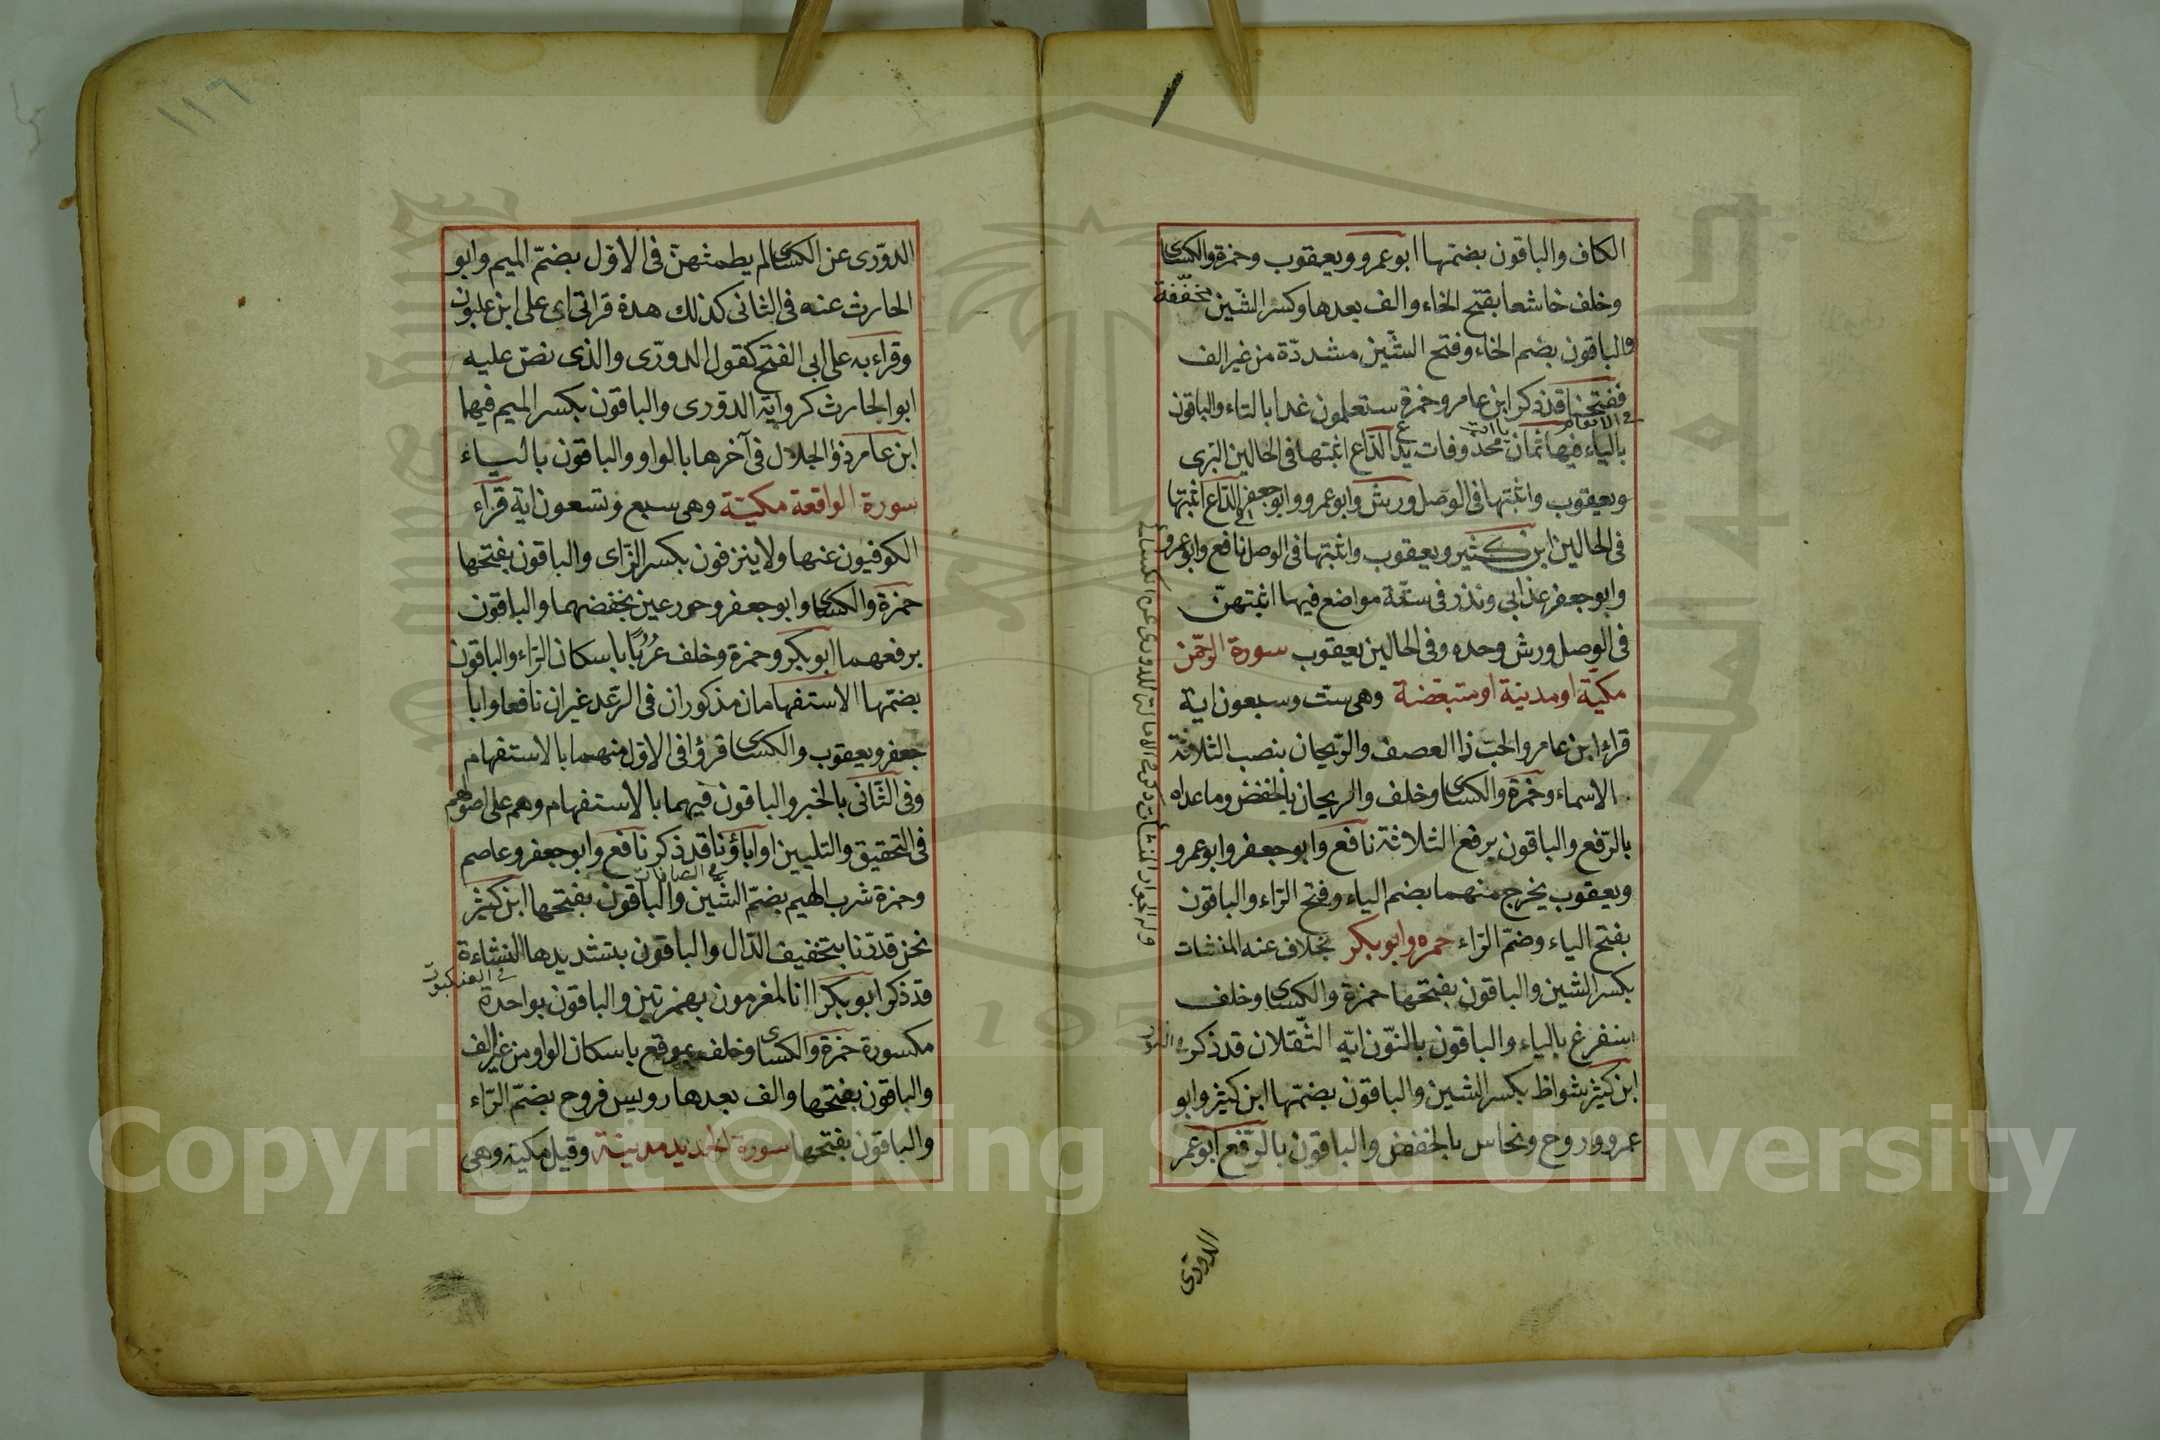 الكاف والباقون بضمها ابو عمرو ويعقوب وحمزة والكسائى
وخلف خاشعا بفتح الخاء والف بعدها وكسر الشين مخففة
والباقون بضم الخاء وفتح الشين مشددة من غير الف
ففتحنا قد ذكر ابن عامر وحمزة ستعلمون غدا بالتاء والباقون
فى الانعام
بالياء فيها ثمان محذوفات يدع الداع اثبتها فى الحالين البزى
ويعقوب واثبتها فى الوصل ورش وابو عمرو وابو جعفر الى الداع اثبتها
فى الحالين ابن كثير ويعقوب واثبتها فى الوصل نافع وابو عمرو
وابو جعفر عذابى ونذر فى ستة مواضع فيها اثبتهن
فى الوصل ورش وحده وفى الحالين يعقوب سورة الرحمن
مكية او مدنية او متبعضة وهى ست وسبعون اية
قراء ابن عامر والحب ذا العصف والريحان بنصب الثلاثة
الاسماء وحمزة والكسائى وخلف والريحان بالخفض وما عداه
بالرفع والباقون برفع الثلاثة نافع وابو جعفر وابو عمرو
ويعقوب يخرج منهما بضم الياء وفتح الراء والباقون
بفتح الياء وضم الراء حمزه وابو بكر بخلاف عنه المنشات
بكسر الشين والباقون بفتحها حمزة والكسائى وخلف
سنفرغ بالياء والباقون بالنون ايه الثقلان قد ذكر فى النور
ابن كثير شواظ بكسر الشين والباقون بضمها ابن كثير وابو
عمرو وروح ونحاس بالخفض والباقون بالرفع ابو عمر
الدورى
١١٦
الدورى عن الكسائى لم يطمثهن فى الاول بضم الميم وابو
الحارث عنه فى الثانى كذلك هذه قراتى اى على ابن غلبون
وقراء به على ابى الفتح كقول الدورى والذى نص عليه
ابو الحارث كرواية الدورى والباقون بكسر الميم فيهما
ابن عامر ذو الجلال فى آخرها بالواو والباقون بالياء
سورة الواقعة مكية وهى سبع وتسعون اية قراء
الكوفيون عنها ولا ينزفون بكسر الزاى والباقون بفتحها
حمزة والكسائى وابو جعفر وحور عين بخفضهما والباقون
برفعهما ابو بكر وحمزة وخلف عربا باسكان الراء والباقون
بضمها الاستفهامان مذكوران فى الرعد غير ان نافعا وابا
جعفر ويعقوب والكسائى قرؤا فى الاول منهما بالاستفهام
وفى الثانى بالخبر والباقون فيهما بالاستفهام وهم على اصولهم
فى التحقيق والتليين او آباؤنا قد ذكر نافع وابو جعفر وعاصم
فى الصافات
وحمزة شرب الهيم بضم الشين والباقون بفتحها ابن كثير
نحن قدرنا بتخفيف الدال والباقون بتشديدها النشاءة
فى العنكبوت
قد ذكر ابو بكر اانا لمغرمون بهمزتين والباقون بواحدة
مكسورة حمزة والكسائى وخلف بموقع باسكان الواو من غير الف
والباقون بفتحها والف بعدها رويس فروح بضم الراء
والباقون بفتحها سورة الحديد مدنية وقيل مكية وهى
Copyright © King Saud University